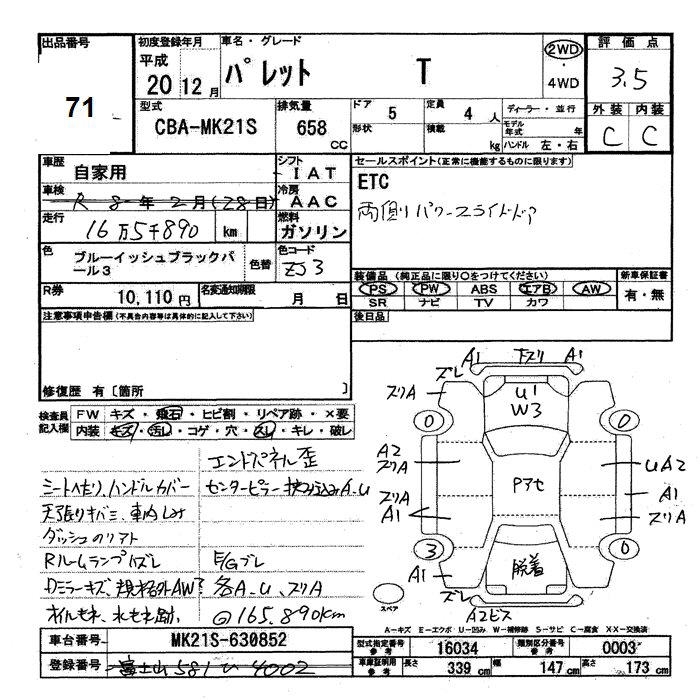 出品番号
71
初度登録年月
平成
20 12月
車名・グレード
パレット T
2WD
・
4WD
評価点
3.5
型式
CBA-MK21S
排気量
658 CC
ドア 5
形状
定員 4 人
積載 kg
ディーラー・並行
モデル年式 年
ハンドル 左・右
外装 内装
C C
車歴
自家用
シフト
IAT
車検
R 8年2月(28日)
冷房
AAC
走行
16万5千890 km
燃料
ガソリン
色
ブルーイッシュブラックパール3
色替
色コード
ZJ3
R券
10,110円
名変通知期限
月 日
セールスポイント(正常に機能するものに限ります)
ETC
両側パワースライドドア
装備品 (純正品に限り○をつけてください)
PS PW ABS エアB AW
SR ナビ TV カワ
新車保証書
有・無
注意事項申告欄(不具合内容等は具体的に記入して下さい)
後日品
修復歴 有〔箇所 〕
検査員記入欄
FW キズ・飛石・ヒビ割・リペア跡・×要
内装 キズ・汚レ・コゲ・穴・スレ・キレ・破レ
エンドパネル歪
シートヘタリ、ハンドルカバー
センターピラー A.U
天張りキバミ、車内しみ
ダッシュのリアト
Rルームランプハズレ
E/Gブレ
Dミラーキズ、規格外AW?
各A.U、スリA
オイルモネ、水モネ跡.
◎165.890km
A1 下スリ A1
ズレ
スリA
U1
W3
0 0
A2
スリA
UA2
Pアセ
スリA
A1
A1
スリA
3 0
脱着
A1
ズレ
A2ビス
スペア
A-キズ E-エクボ U-凹み W-補修跡 S-サビ C-腐食 XX-交換済
車台番号
MK21S-630852
登録番号
富士山 581 い 4002
型式指定番号 参考
16034
類別区分番号 参考
0003
車庫証明用 参考
長さ 339 cm
幅 147 cm
高さ 173 cm